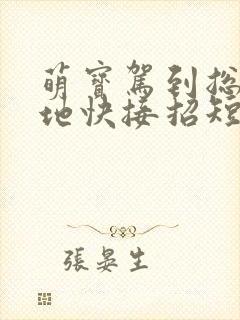 萌寶駕到總
地快接招短
張晏生